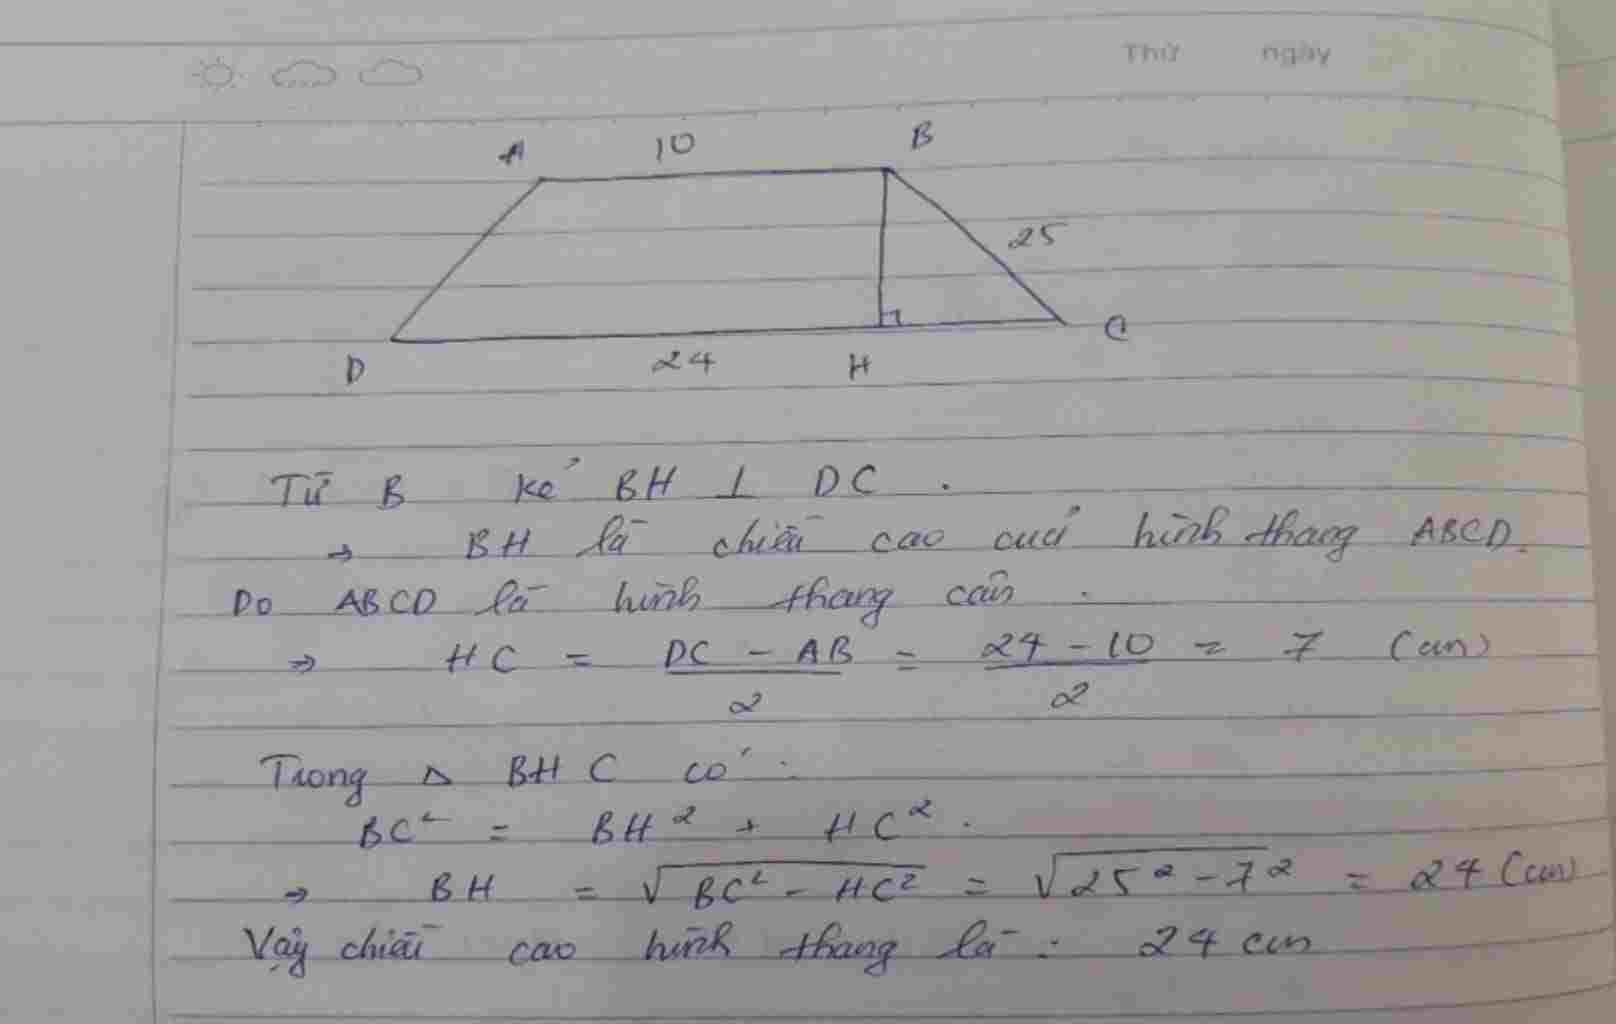 Thứ ngày
A 10 B
25
D 24 H C
Từ B kẻ BH ⊥ DC .
→ BH là chiều cao cuả hình thang ABCD.
Do ABCD là hình thang cân .
⇒ HC = (DC - AB)/2 = (24 - 10)/2 = 7 (cm)
Trong Δ BHC có :
BC² = BH² + HC² .
⇒ BH = √(BC² - HC²) = √(25² - 7²) = 24 (cm)
Vậy chiều cao hình thang là : 24 cm